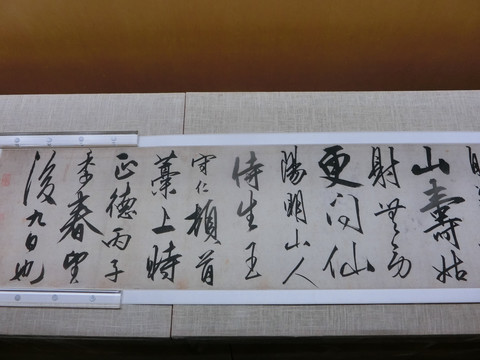 山壽姑
射無勞
更問仙
陽明山人
侍生王
守仁頓首
藁上時
正德丙子
季春望
後九日也